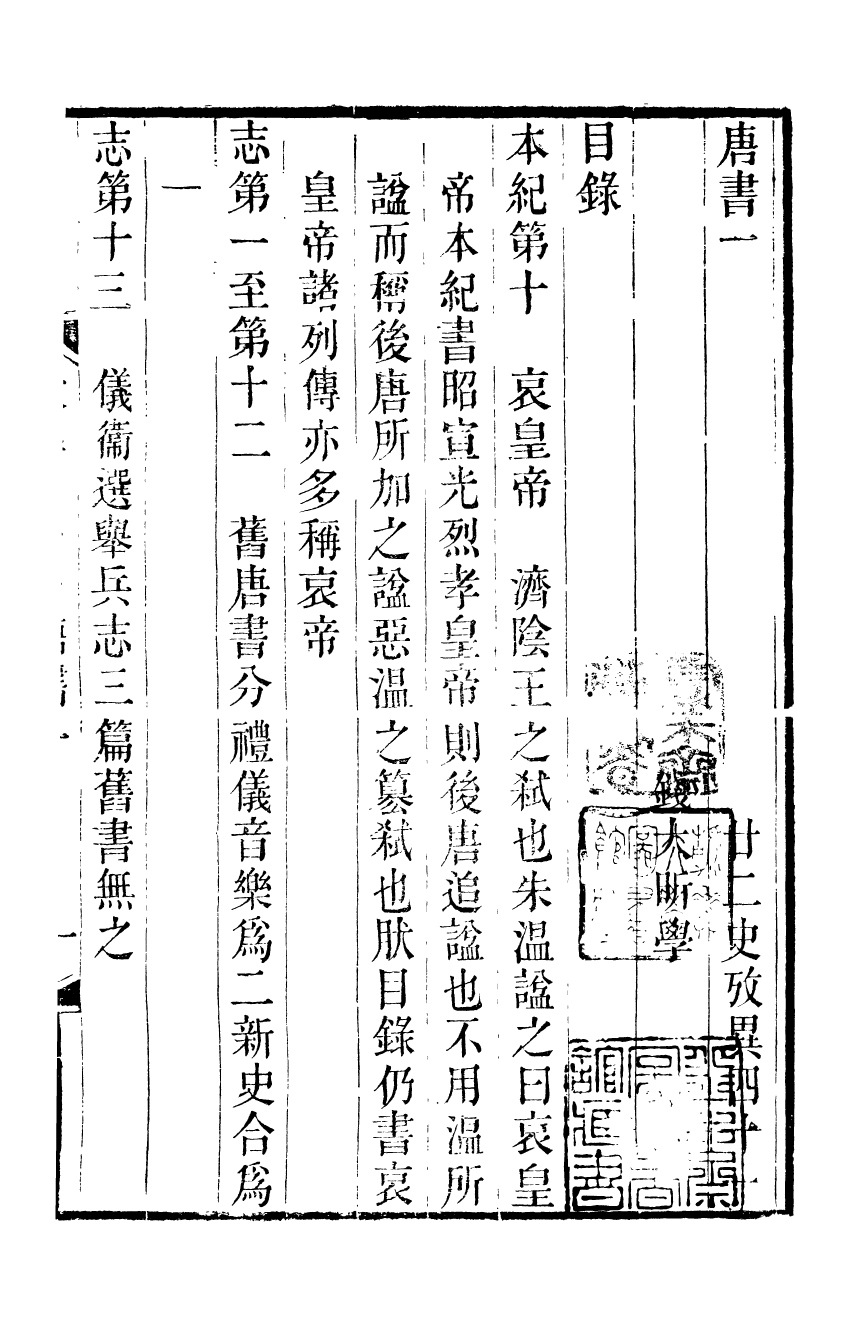 唐書一 廿二史攷異四十一
錢大昕學
目錄
本紀第十 哀皇帝 濟陰王之弒也朱溫諡之曰哀皇
帝本紀書昭宣光烈孝皇帝則後唐追諡也不用溫所
諡而稱後唐所加之諡惡溫之篡弒也肰目錄仍書哀
皇帝諸列傳亦多稱哀帝
志第一至第十二 舊唐書分禮儀音樂爲二新史合爲
一
志第十三 儀衞選舉兵志三篇舊書無之